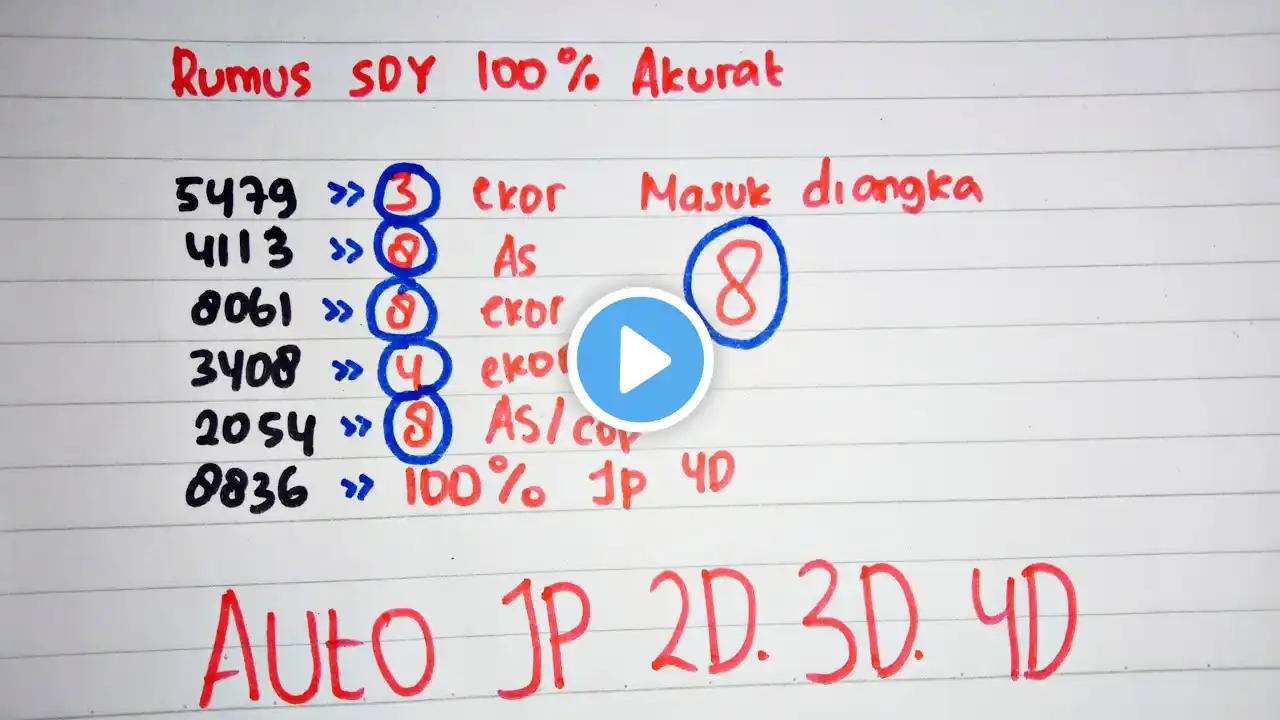 Rumus SDY 100% Akurat
5479 >> 3 ekor Masuk diangka
4113 >> 8 As 8
8061 >> 8 ekor
3408 >> 4 ekor
2054 >> 8 As/cop
8836 >> 100% Jp 4D
Auto JP 2D. 3D. 4D